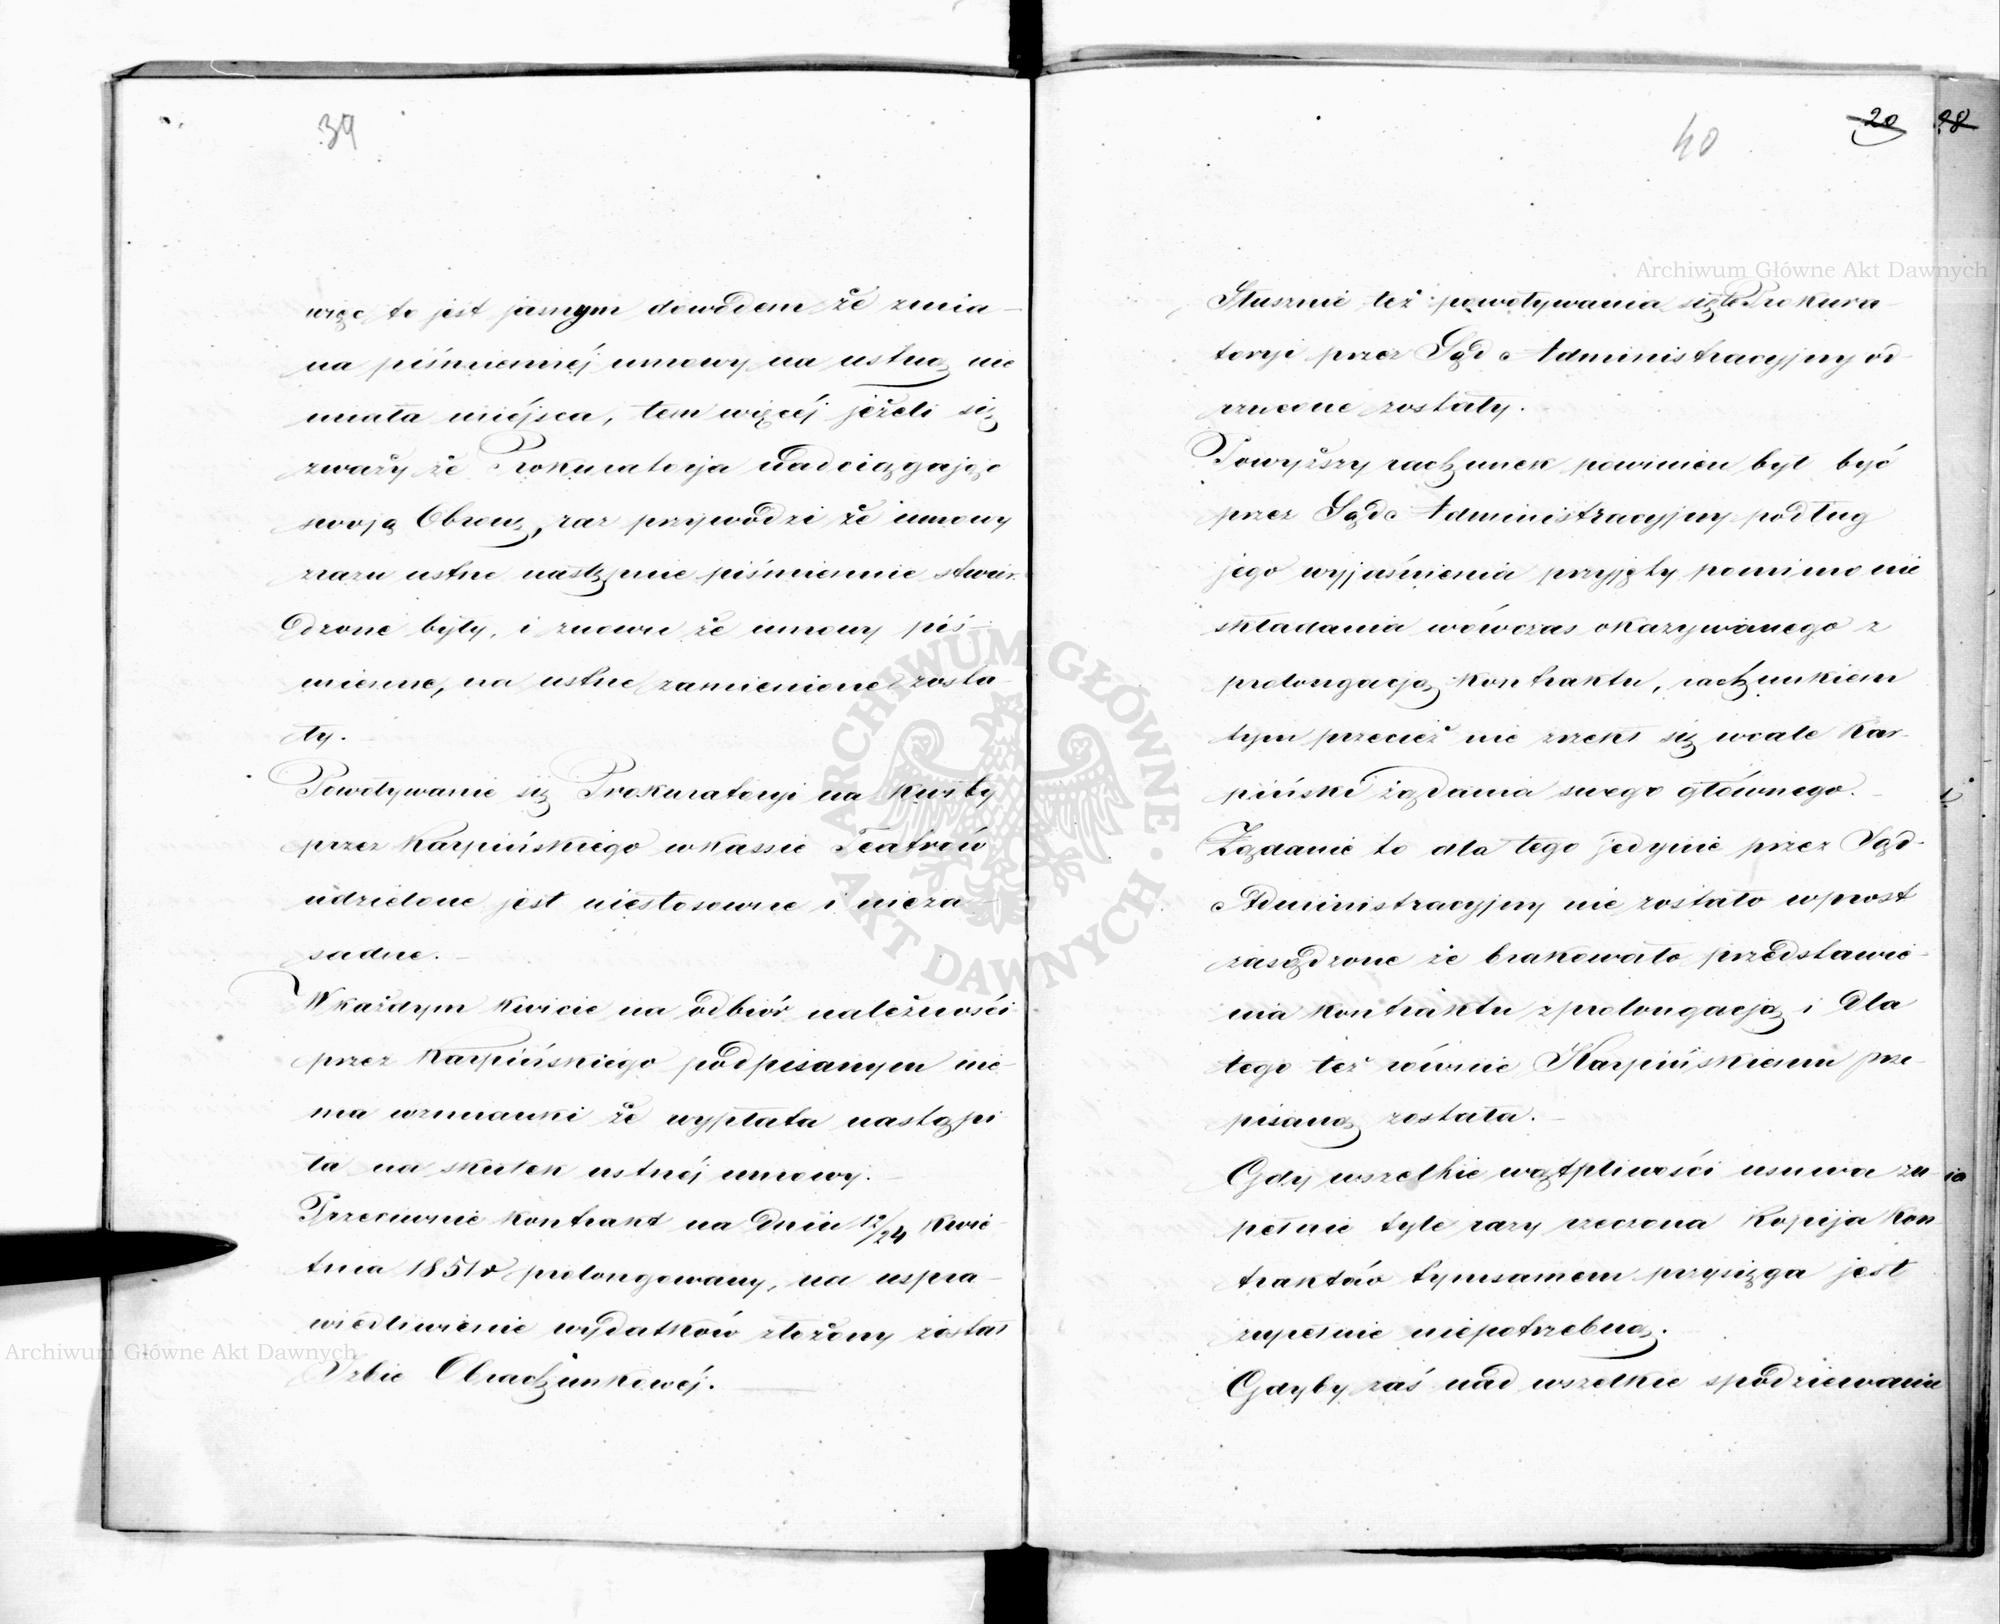 39
więc to jest jasnym dowodem że zmia-
na piśmiennéj umowy na ustną nie
miała miéjsca, tem więcéj jeżeli się
zważy że Prokuratorja nadciągając
swoją Obronę, raz przywodzi że umowy
zrazu ustne następnie piśmiennie stwier-
dzone były, i znowu że umowy piś-
mienne, na ustne zamienione zosta-
ły.
Powoływanie się Prokuratoryi na kwity
przez Karpińskiego w kassie Teatrów
udzielone jest niestosowne i nieza-
sadne.
W każdym kwicie na odbiór należności
przez Karpińskiego podpisanym nie-
ma wzmianki że wypłata nastąpi
ła na skutek ustnéj umowy.
Przeciwnie kontrakt na dniu 12/24 Kwie-
tnia 1851 r prolongowany, na uspra-
wiedliwienie wydatków złożony został
Izbie Obrachunkowéj.
40
20
98
Słusznie też powoływania się Prokura-
toryi przez Sąd Administracyjny od-
rzucone zostały.
Powyższy rachunek powinien był być
przez Sąd Administracyjny podług
jego wyjaśnienia przyjęty pomimo nie
składania wówczas okazywanego z
prolongacją kontraktu, rachunkiem
tym przecież nie zrzekł się wcale Kar-
piński żądania swego głównego.
Żądanie to dla tego jedynie przez Sąd
Administracyjny nie zostało wprost
zasądzone że brakowało przedstawie-
nia kontraktu z prolongacją i dla
tego też równie Karpińskiemu prze-
pisaną została.
Gdy wszelkie wątpliwości usuwa zu-
pełnie tyle razy rzeczona Kopija Kon-
traktów tymsamem przysięga jest
zupełnie niepotrzebną.
Gdyby zaś nad wszelkie spodziewanie
Archiwum Główne Akt Dawnych
Archiwum Główne Akt Dawnych
ARCHIWUM GŁÓWNE AKT DAWNYCH